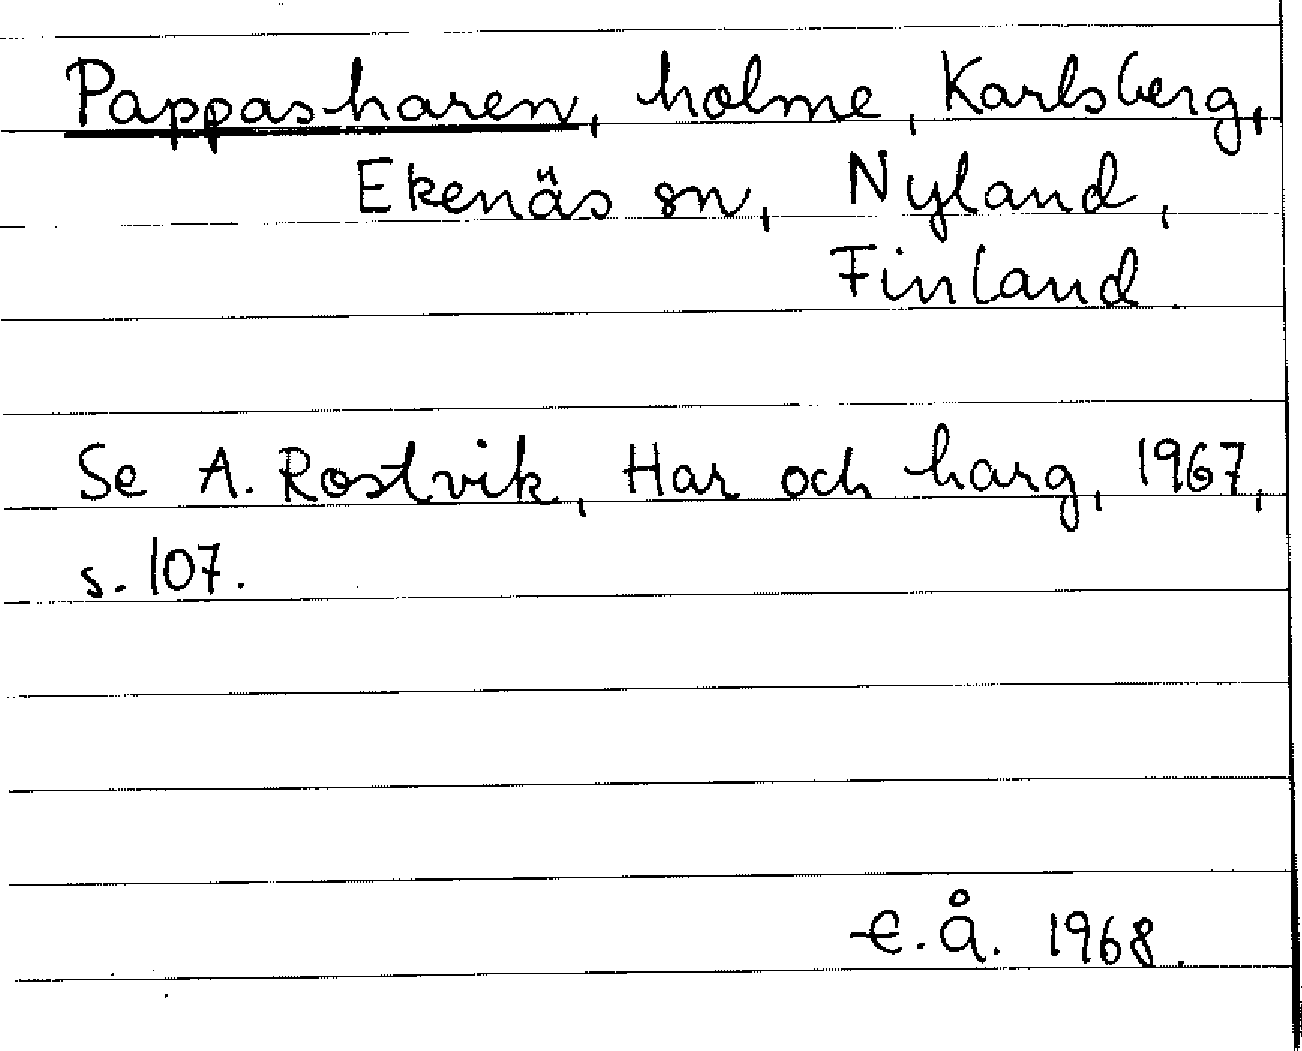 Pappasharen, holme, Karlsberg,
Ekenäs sn, Nyland,
Finland.
Se A. Rostvik, Har och harg, 1967,
s. 107.
E.Å. 1968.